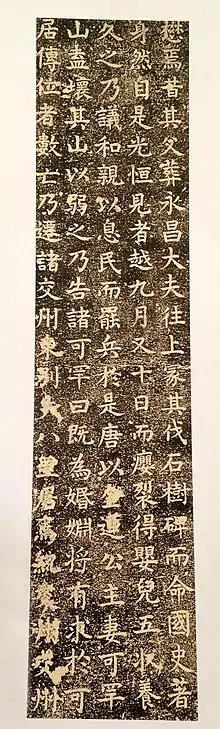 懋焉昔其父葬永昌大夫往上冢其伐石樹碑而命國史著
身然自是光恒見者越九月又十日而癭裂得嬰兒五收養
久之乃議和親以息民而罷兵於是唐以金蓮公主妻可罕
山盡壞其山以弱之乃告諸可罕曰既為婚姻將有求於可
居傳位者數亡乃遷諸交州東別失八里居焉州